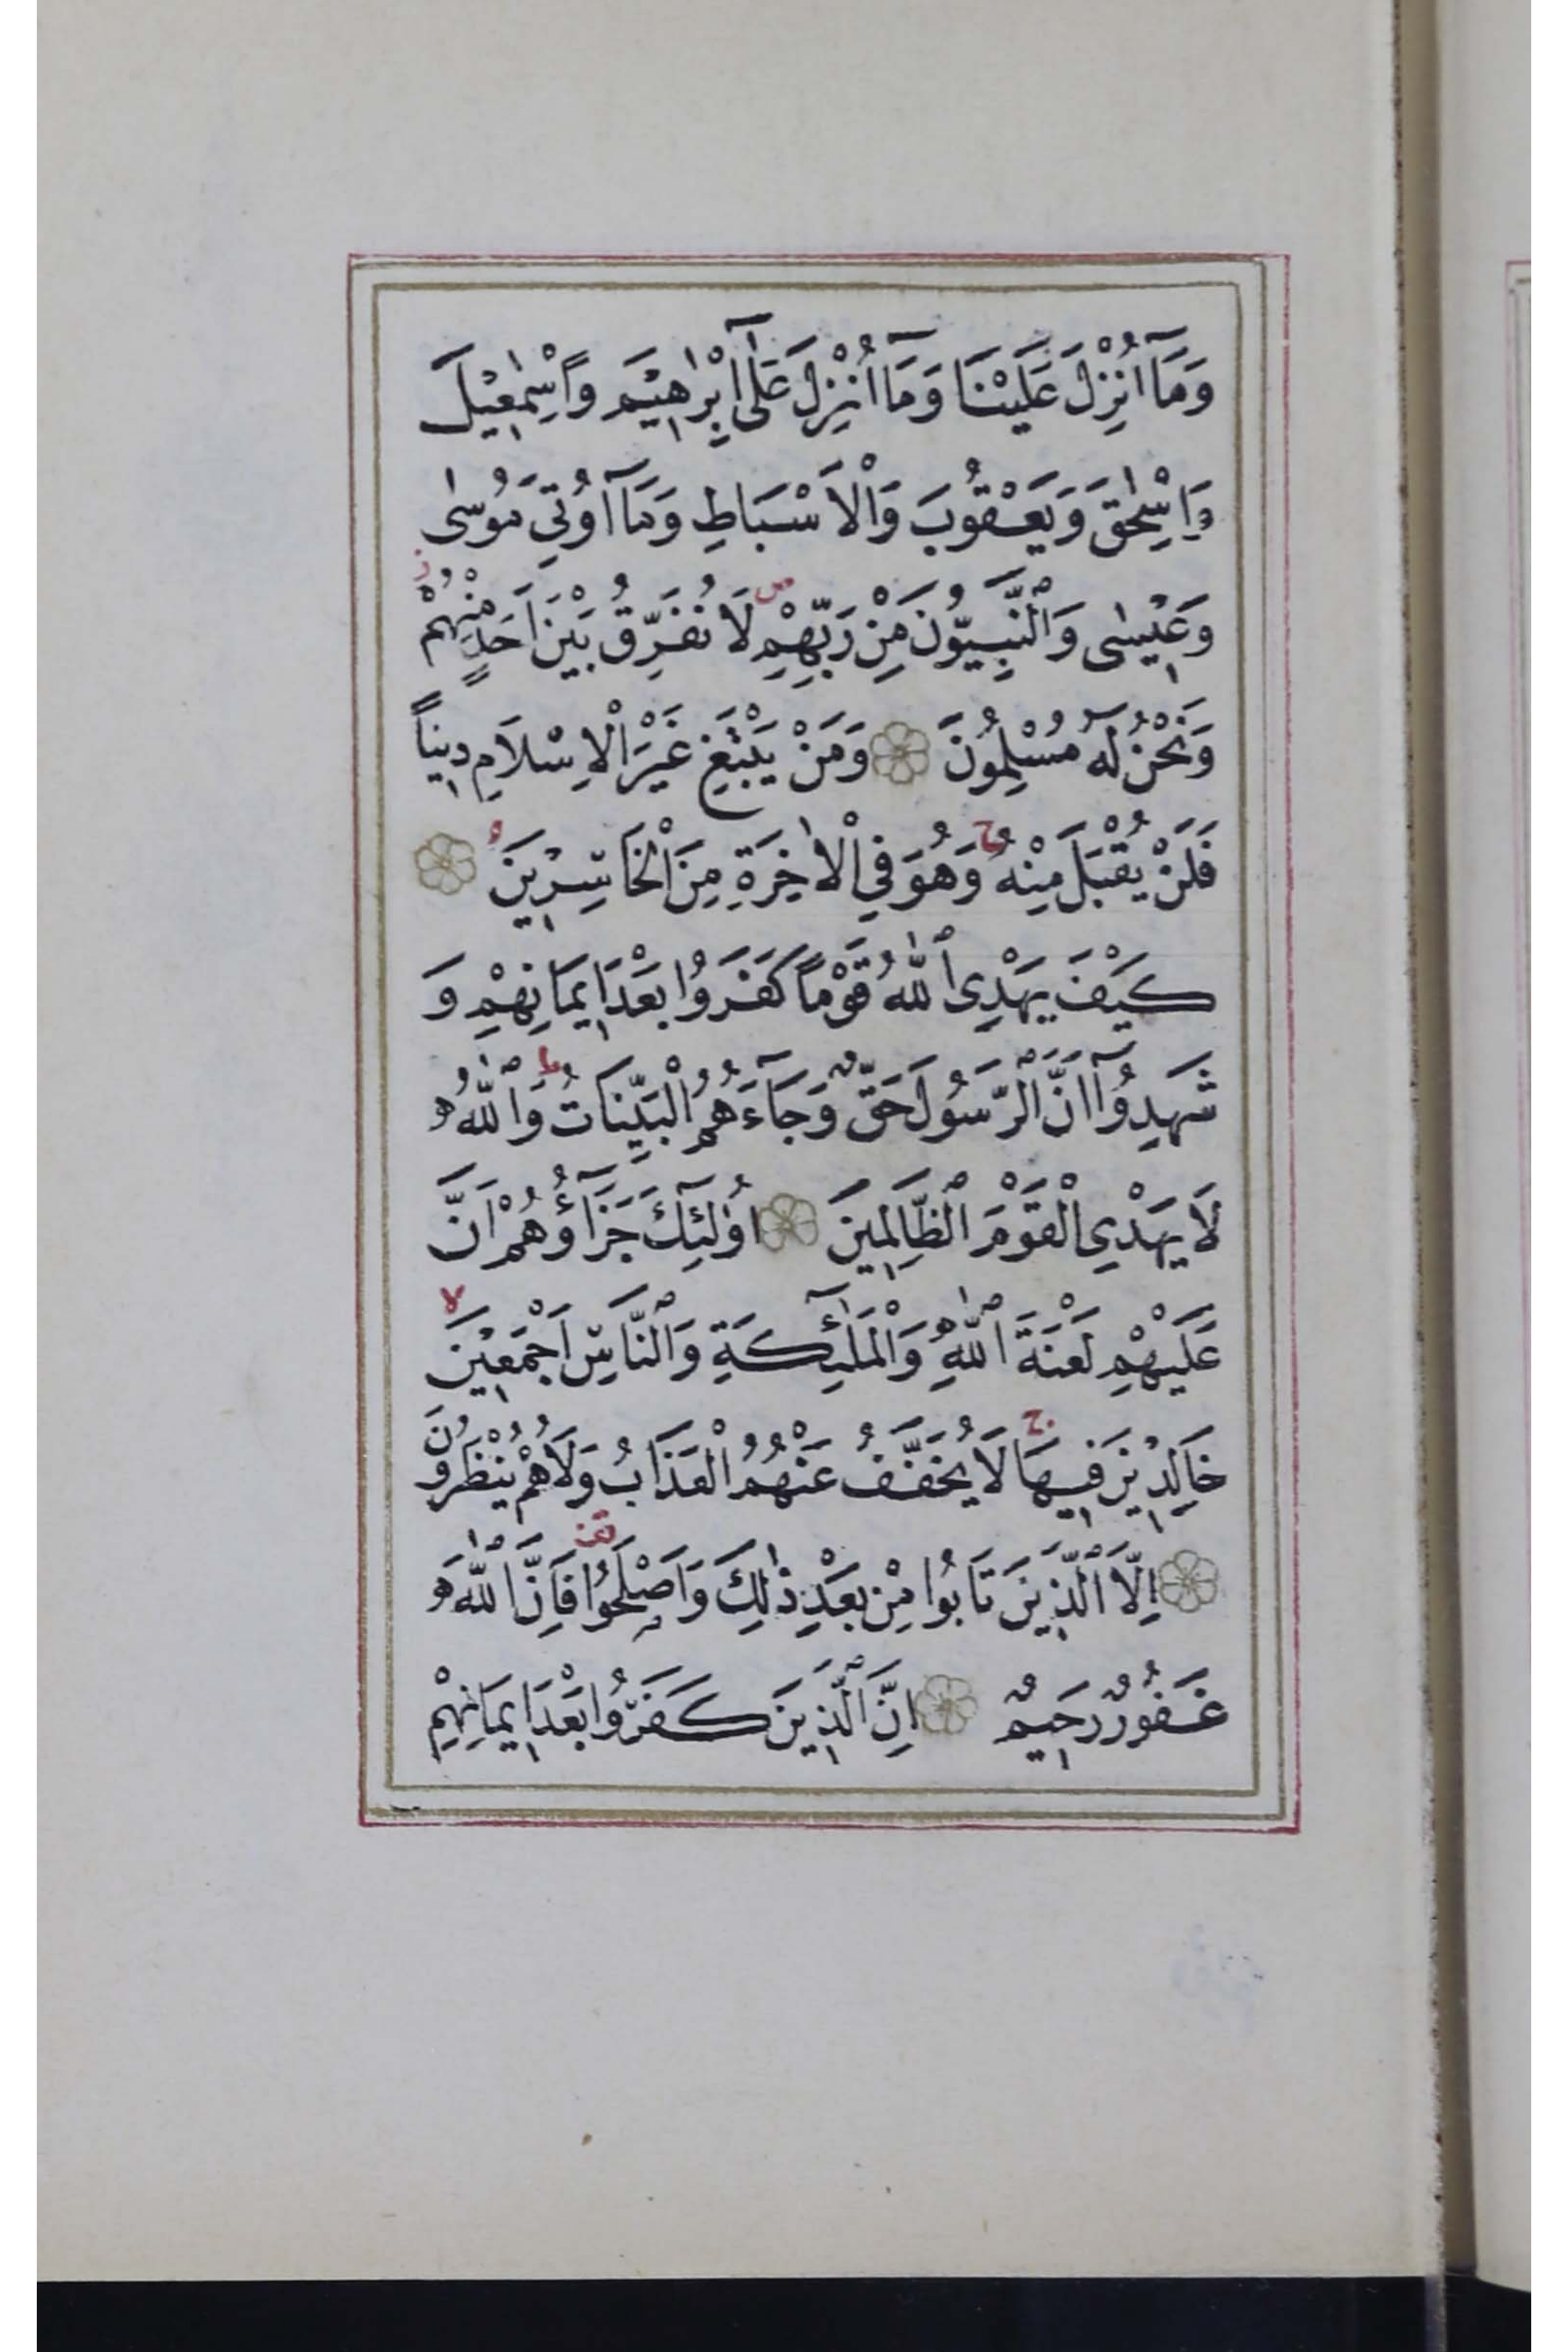 وَمَآ اُنْزِلَ عَلَيْنَا وَمَآ اُنْزِلَ عَلٰٓى اِبْرٰهِيْمَ وَاِسْمٰعِيْلَ
وَاِسْحٰقَ وَيَعْقُوْبَ وَالْاَسْبَاطِ وَمَآ اُوْتِيَ مُوْسٰى
وَعِيْسٰى وَالنَّبِيُّوْنَ مِنْ رَبِّهِمْ ص لَا نُفَرِّقُ بَيْنَ اَحَدٍ مِنْهُمْ ز
وَنَحْنُ لَهُ مُسْلِمُوْنَ وَمَنْ يَبْتَغِ غَيْرَ الْاِسْلَامِ دِيْناً
فَلَنْ يُقْبَلَ مِنْهُ ج وَهُوَ فِي الْاٰخِرَةِ مِنَ الْخَاسِرِيْنَ
كَيْفَ يَهْدِى اللّٰهُ قَوْماً كَفَرُوا بَعْدَ اِيمَانِهِمْ وَ
شَهِدُوْآ اَنَّ الرَّسُوْلَ حَقٌّ وَجَآءَهُمُ الْبَيِّنَاتُ ط وَاللّٰهُ
لَا يَهْدِي الْقَوْمَ الظَّالِمِيْنَ اُوْلٰٓئِكَ جَزَآؤُهُمْ اَنَّ
عَلَيْهِمْ لَعْنَةَ اللّٰهِ وَالْمَلٰٓئِكَةِ وَالنَّاسِ اَجْمَعِيْنَ لا
خَالِدِيْنَ فِيْهَا ج لَا يُخَفَّفُ عَنْهُمُ الْعَذَابُ وَلَا هُمْ يُنْظَرُوْنَ
اِلَّا الَّذِيْنَ تَابُوا مِنْ بَعْدِ ذٰلِكَ وَاَصْلَحُوْا فَاِنَّ اللّٰهَ
غَفُوْرٌ رَحِيْمٌ اِنَّ الَّذِيْنَ كَفَرُوْا بَعْدَ اِيْمَانِهِمْ